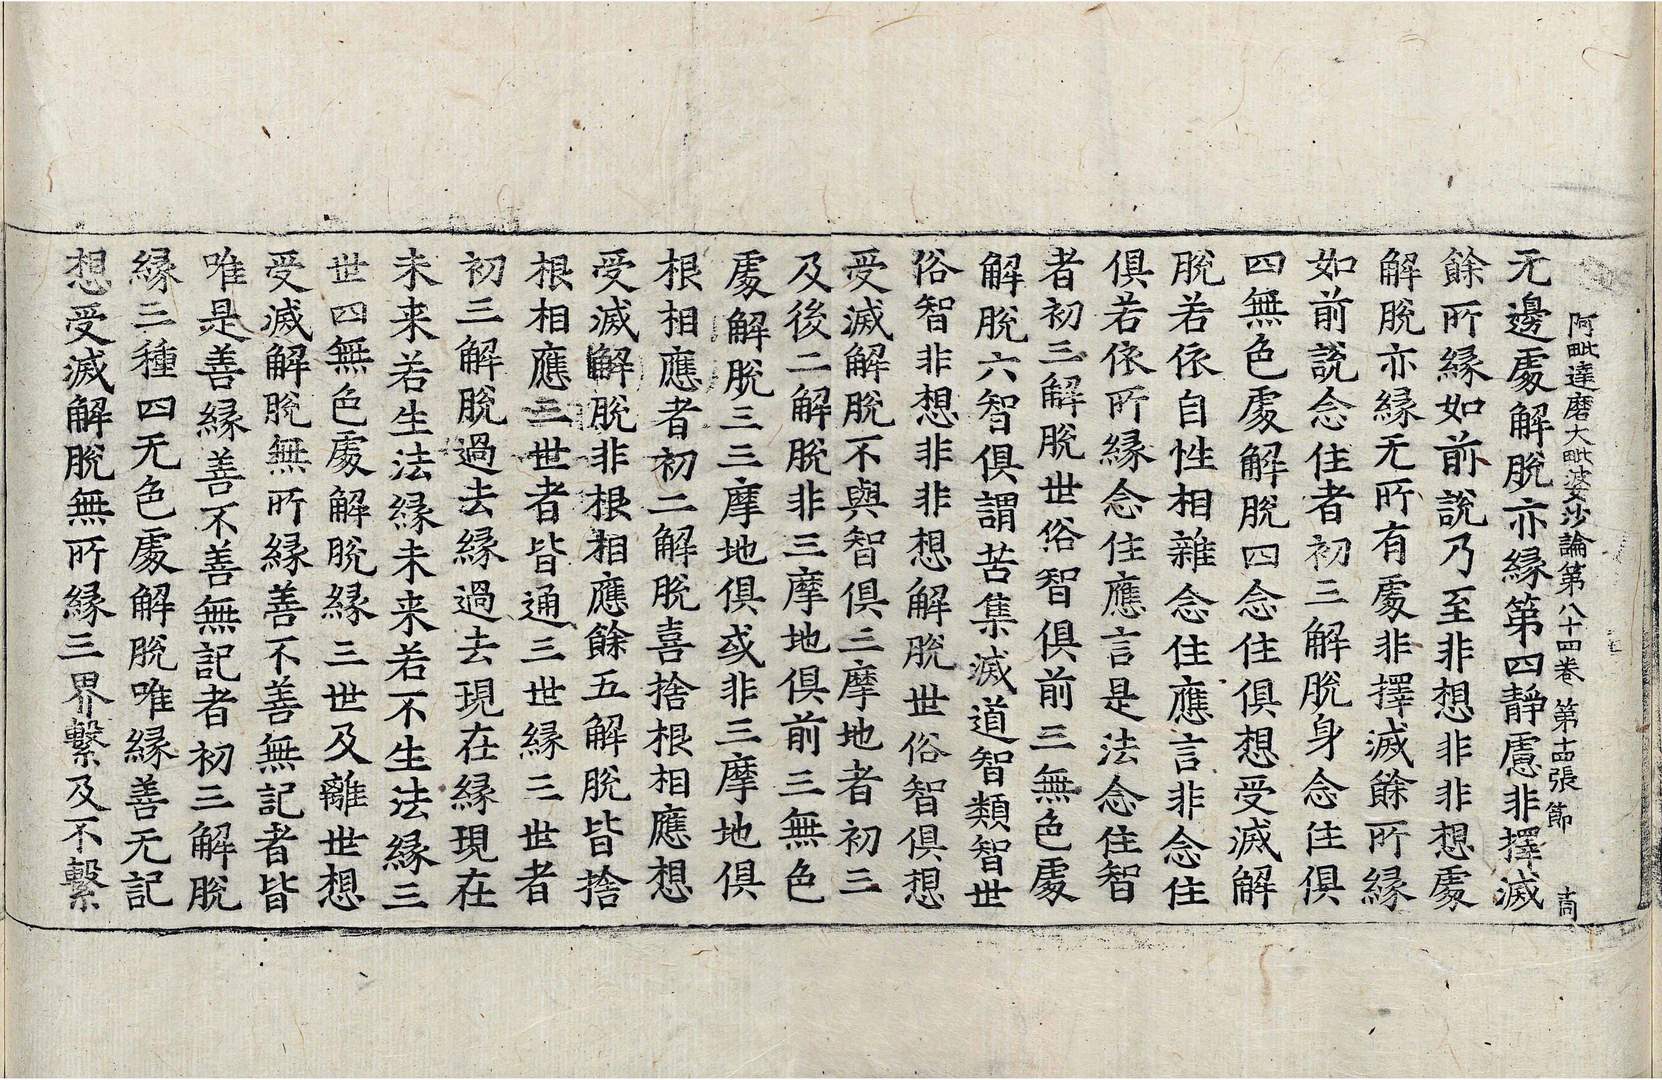 阿毗達磨大毗婆沙論第八十四卷 第十四張 節
无邊處解脫亦緣第四靜慮非擇滅
餘所緣如前說乃至非想非非想處
解脫亦緣无所有處非擇滅餘所緣
如前說念住者初三解脫身念住俱
四無色處解脫四念住俱想受滅解
脫若依自性相雜念住應言非念住
俱若依所緣念住應言是法念住智
者初三解脫世俗智俱前三無色處
解脫六智俱謂苦集滅道智類智世
俗智非想非非想解脫世俗智俱想
受滅解脫不與智俱三摩地者初三
及後二解脫非三摩地俱前三無色
處解脫三三摩地俱或非三摩地俱
根相應者初二解脫喜捨根相應想
受滅解脫非根相應餘五解脫皆捨
根相應三世者皆通三世緣三世者
初三解脫過去緣過去現在緣現在
未来若生法緣未来若不生法緣三
世四無色處解脫緣三世及離世想
受滅解脫無所緣善不善無記者皆
唯是善緣善不善無記者初三解脫
緣三種四无色處解脫唯緣善无記
想受滅解脫無所緣三界繫及不繫